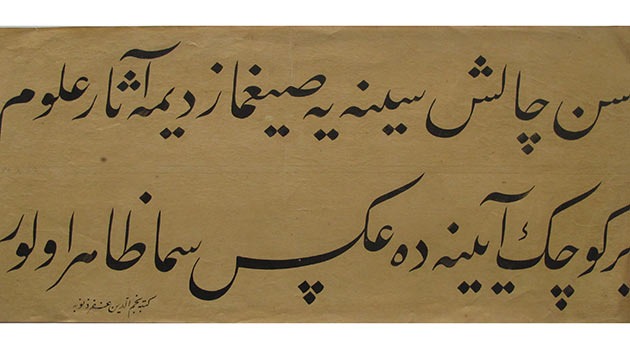 سن چالش سینه یه صیغماز دیمه آثار علوم
بر کوچک آیینه ده عکس سما ظاهر اولور
کتبه نجم الدین غفر ذنوبه